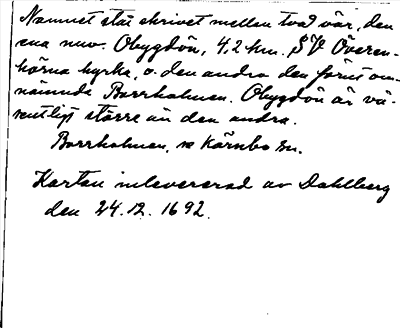 Namnet står skrivet mellan två öar, den
ena nuv. Obygdön, 4,2 km. SV Överen-
hörna kyrka, o. den andra den förut om-
nämnda Borrholmen. Obygdön är vä-
sentligt större än den andra.
Borrholmen, se Kärnbo sn.
Kartan inlevererad av Dahlberg
den 24.12.1692.